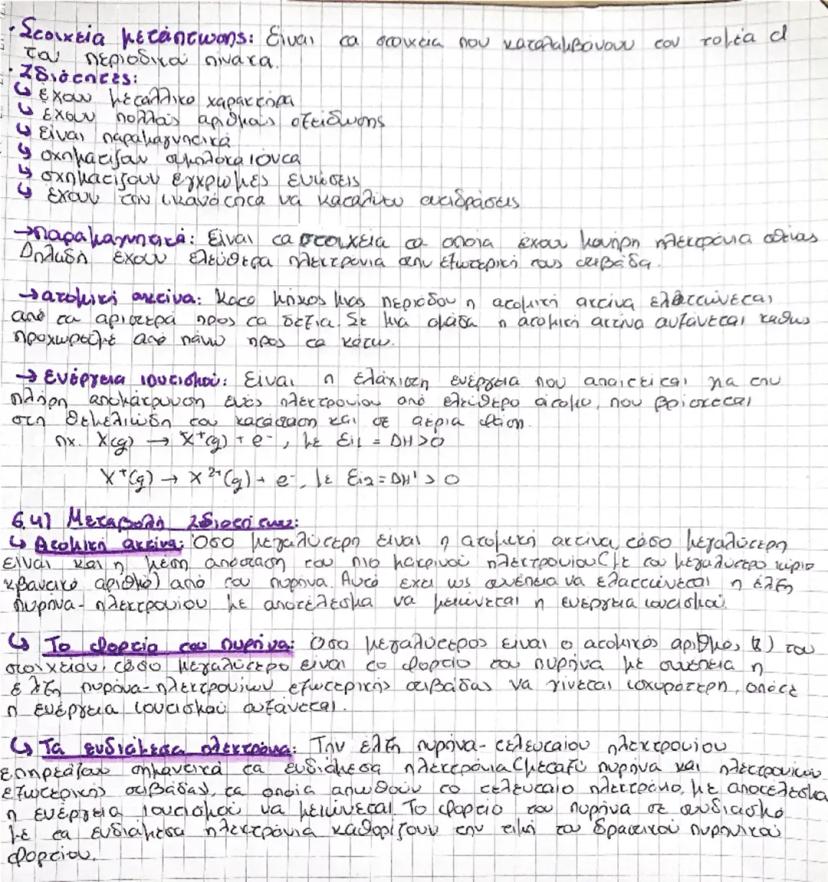 · Στοιχεία μετάπτωσης: Είναι τα στοιχεία που καταλαμβάνουν τον τομέα d
του περιοδικού πίνακα.
· Ιδιότητες:
↳ έχουν μεταλλικό χαρακτήρα
↳ έχουν πολλούς αριθμούς οξείδωσης
↳ είναι παραμαγνητικά
↳ σχηματίζουν σύμπλοκα ιόντα
↳ σχηματίζουν έγχρωμες ενώσεις
↳ έχουν την ικανότητα να καταλύουν αντιδράσεις
→ παραμαγνητικά: Είναι τα στοιχεία τα οποία έχουν μονήρη ηλεκτρόνια σθένους
Δηλαδή έχουν ελεύθερα ηλεκτρόνια στην εξωτερική τους στιβάδα.
→ ατομική ακτίνα: Κατά μήκος μιας περιόδου η ατομική ακτίνα ελαττώνεται
από τα αριστερά προς τα δεξιά. Σε μια ομάδα η ατομική ακτίνα αυξάνεται καθώς
προχωράμε από πάνω προς τα κάτω.
→ Ενέργεια ιοντισμού: Είναι η ελάχιστη ενέργεια που απαιτείται για την
πλήρη απομάκρυνση ενός ηλεκτρονίου από ελεύθερο άτομο, που βρίσκεται
στη θεμελιώδη του κατάσταση και σε αέρια φάση.
πχ. X(g) → X⁺(g) + e⁻, με Ei1 = ΔH > 0
X⁺(g) → X²⁺(g) + e⁻, με Ei2 = ΔH' > 0
6.4) Μεταβολή Ιδιοτήτων:
↳ Ατομική ακτίνα: Όσο μεγαλύτερη είναι η ατομική ακτίνα, τόσο μεγαλύτερη
είναι και η μέση απόσταση του πιο μακρινού ηλεκτρονίου (με το μεγαλύτερο κύριο
κβαντικό αριθμό) από τον πυρήνα. Αυτό έχει ως συνέπεια να ελαττώνεται η έλξη
πυρήνα-ηλεκτρονίου με αποτέλεσμα να μειώνεται η ενέργεια ιοντισμού.
↳ Το φορτίο του πυρήνα: Όσο μεγαλύτερος είναι ο ατομικός αριθμός (Z) του
στοιχείου, τόσο μεγαλύτερο είναι το φορτίο του πυρήνα με συνέπεια η
έλξη πυρήνα-ηλεκτρονίων εξωτερικής στιβάδας να γίνεται ισχυρότερη, οπότε
η ενέργεια ιοντισμού αυξάνεται.
↳ Τα ενδιάμεσα ηλεκτρόνια: Την έλξη πυρήνα-τελευταίου ηλεκτρονίου
επηρεάζουν σημαντικά τα ενδιάμεσα ηλεκτρόνια (μεταξύ πυρήνα και ηλεκτρονίων
εξωτερικής στιβάδας), τα οποία απωθούν το τελευταίο ηλεκτρόνιο, με αποτέλεσμα
η ενέργεια ιοντισμού να μειώνεται. Το φορτίο του πυρήνα σε συνδιασμό
με τα ενδιάμεσα ηλεκτρόνια καθορίζουν την τιμή του δραστικού πυρηνικού
φορτίου.